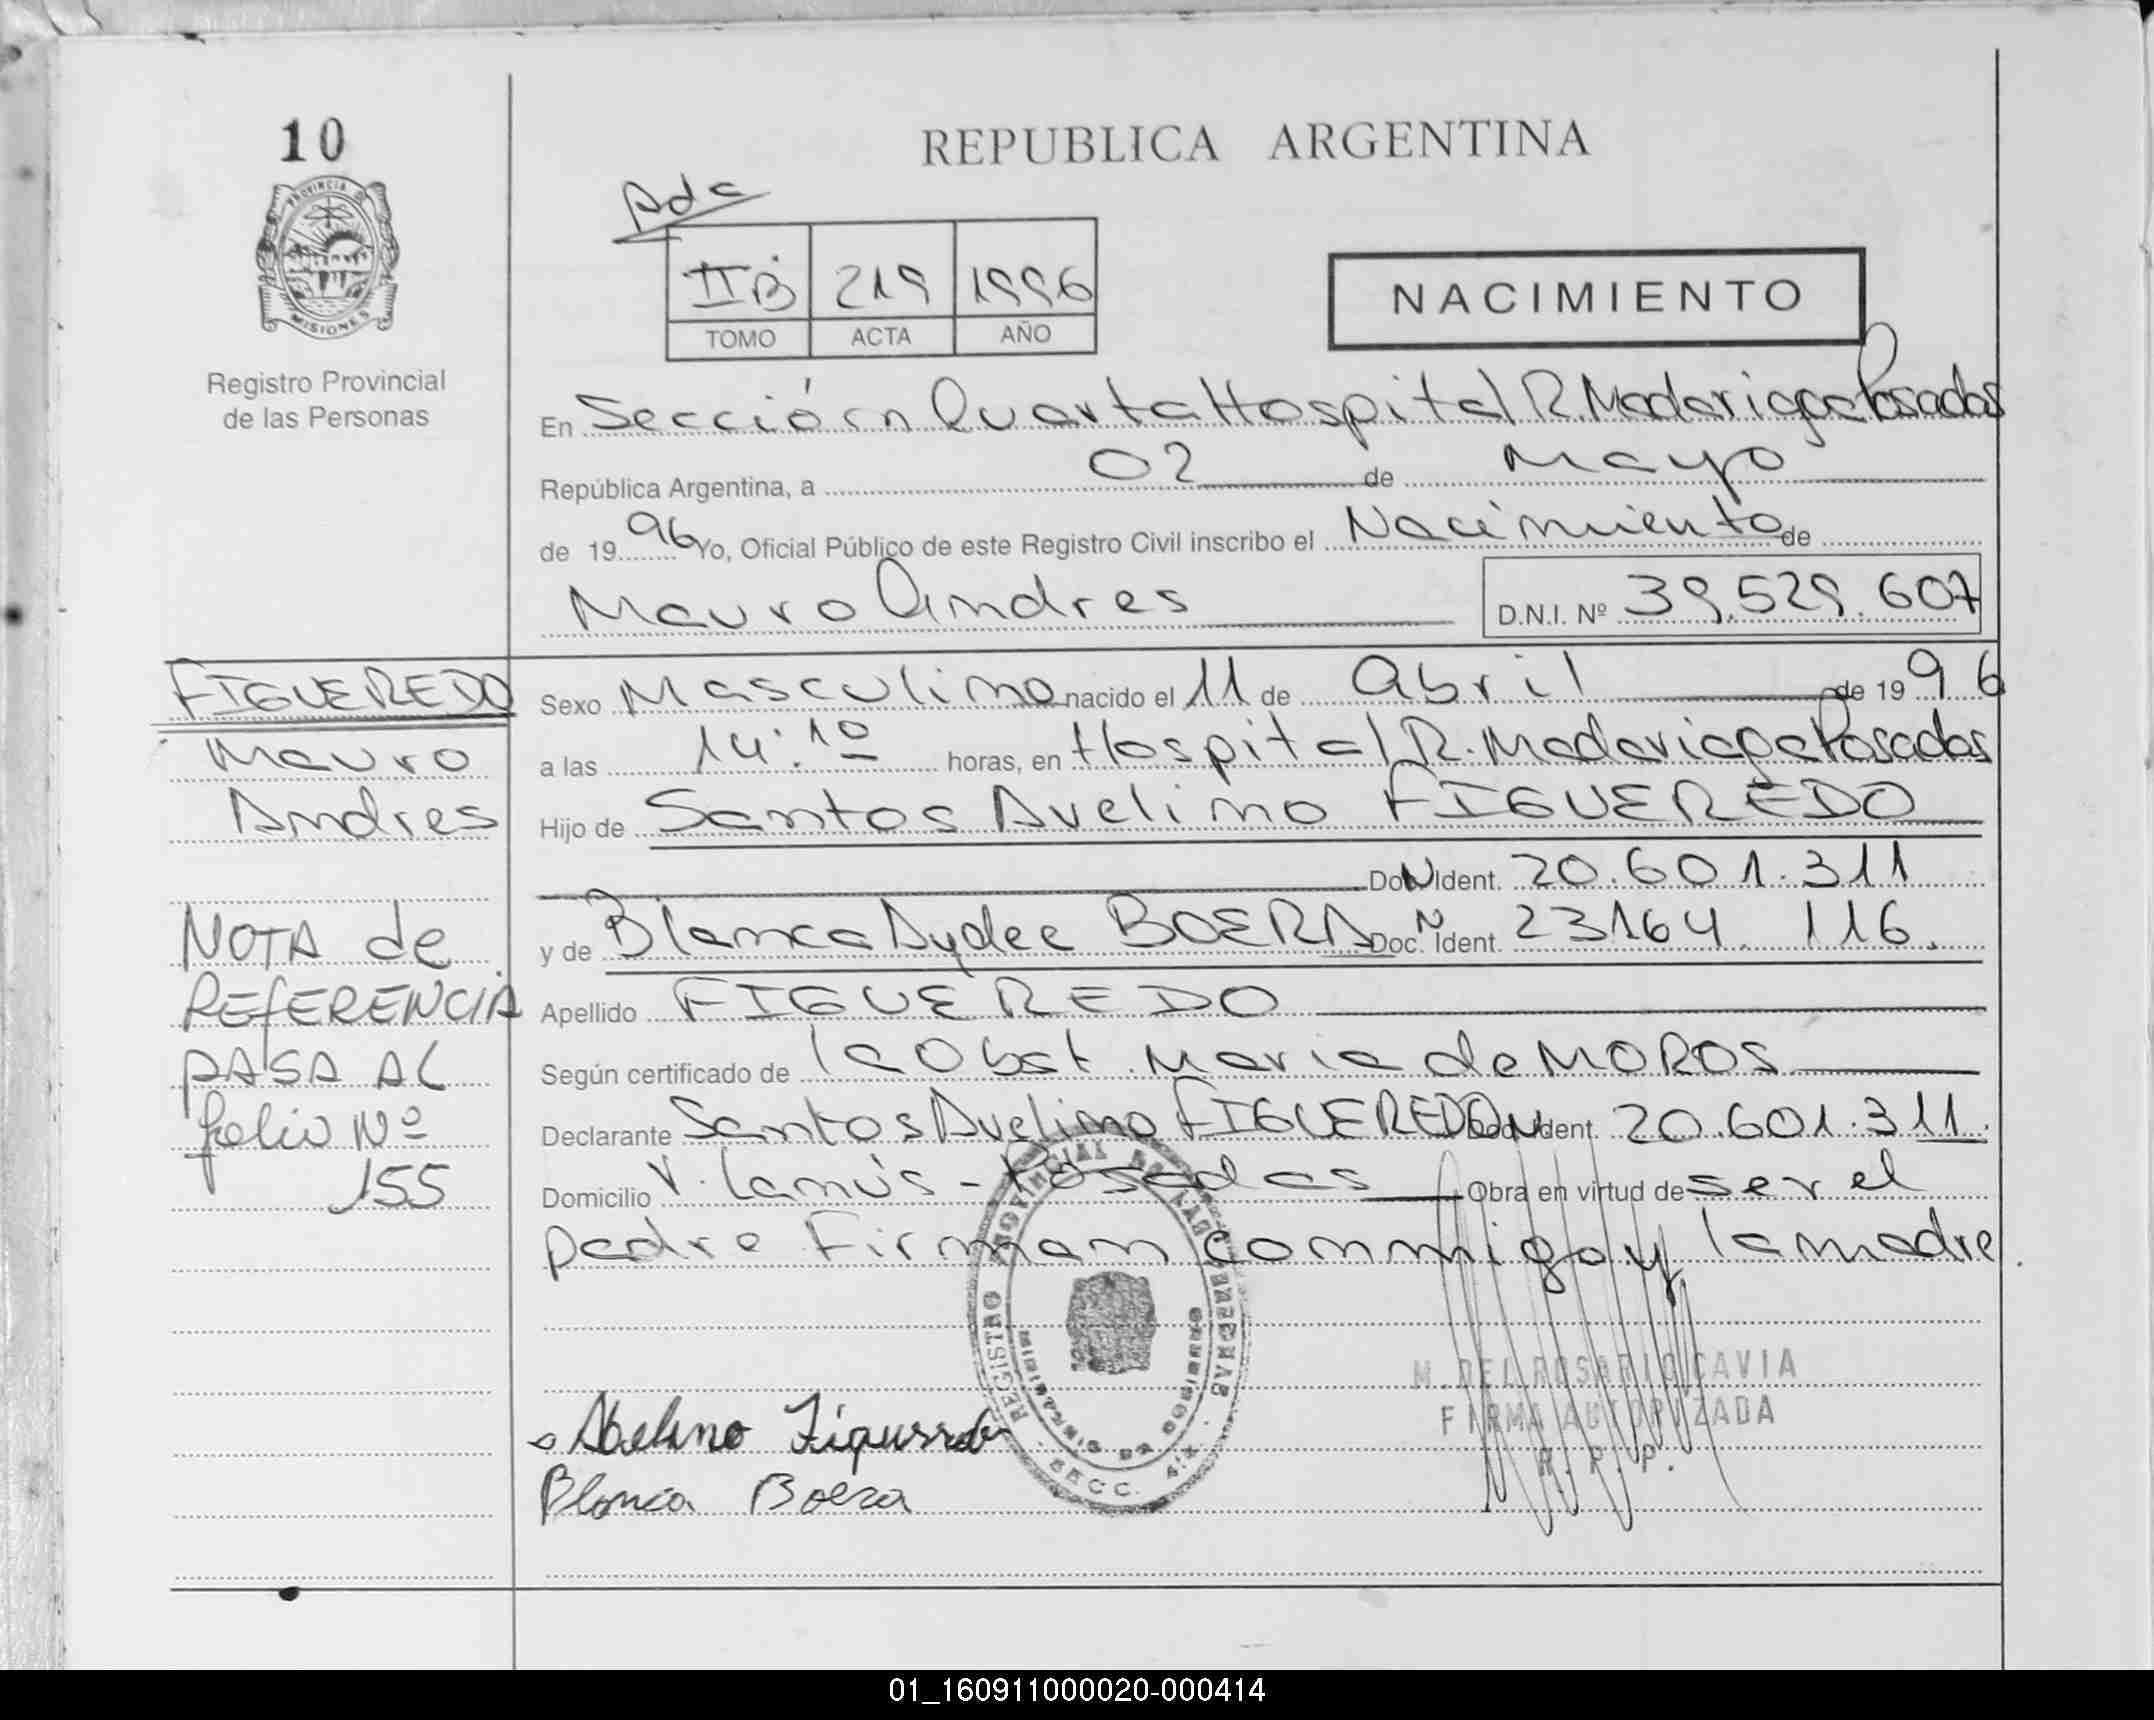 10
REPUBLICA ARGENTINA
PROVINCIA DE
MISIONES
Registro Provincial
de las Personas
Adc
IIB 219 1996
TOMO ACTA AÑO
NACIMIENTO
En Secció cn Quarta Hospital R. Madariaga Posadas
República Argentina, a 02 de Mayo
de 1996 Yo, Oficial Público de este Registro Civil inscribo el Nacimiento de
Mauro Andres D.N.I. Nº 39.529.607
FIGUEREDO
Mauro
Andres
NOTA de
REfERENCIA
PASA AL
folio Nº
155
Sexo Masculino nacido el 11 de Abril de 1996
a las 14:10 horas, en Hospital R. Madariaga Posadas
Hijo de Santos Avelino FIGUEREDO
Doc. N Ident. 20.601.311
y de Blanca Aydee BOERA Doc. N Ident. 23164.116.
Apellido FIGUEREDO
Según certificado de la Obst. Maria de MOROS
Declarante Santos Avelino FIGUEREDO Doc. N Ident. 20.601.311.
Domicilio V. Lanús - Posadas Obra en virtud de ser el
padre Firman conmigo y la madre.
REGISTRO PROVINCIAL DE LAS PERSONAS
MINISTERIO DE GOBIERNO
SECC. 4ta.
M. DEL ROSARIO CAVIA
FIRMA AUTORIZADA
R. P. P.
Abelino Figueredo
Blanca Boera
01_160911000020-000414